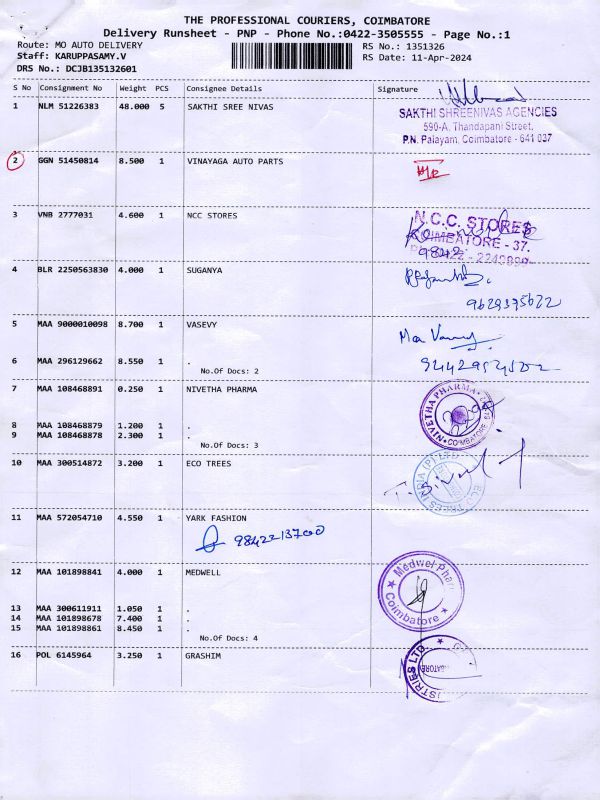 THE PROFESSIONAL COURIERS, COIMBATORE
Delivery Runsheet - PNP - Phone No.:0422-3505555 - Page No.:1
Route: MO AUTO DELIVERY RS No.: 1351326
Staff: KARUPPASAMY.V RS Date: 11-Apr-2024
DRS No.: DCJB135132601
S No Consignment No Weight PCS Consignee Details Signature
1 NLM 51226383 48.000 5 SAKTHI SREE NIVAS
SAKTHI SHREENIVAS AGENCIES
590-A, Thandapani Street,
P.N. Palayam, Coimbatore - 641 037
2 GGN 51450814 8.500 1 VINAYAGA AUTO PARTS
3 VNB 2777031 4.600 1 NCC STORES
N.C.C. STORES
COIMBATORE - 37.
4 BLR 2250563830 4.000 1 SUGANYA
9629395622
5 MAA 9000010098 8.700 1 VASEVY
6 MAA 296129662 8.550 1 .
No.Of Docs: 2
7 MAA 108468891 0.250 1 NIVETHA PHARMA
NIVETHA PHARMA
COIMBATORE
8 MAA 108468879 1.200 1 .
9 MAA 108468878 2.300 1 .
No.Of Docs: 3
10 MAA 300514872 3.200 1 ECO TREES
ECO TREES INDIA (P) LTD
11 MAA 572054710 4.550 1 YARK FASHION
9842213700
12 MAA 101898841 4.000 1 MEDWELL
Medwel Phar
Coimbatore
13 MAA 300611911 1.050 1 .
14 MAA 101898678 7.400 1 .
15 MAA 101898861 8.450 1 .
No.Of Docs: 4
16 POL 6145964 3.250 1 GRASHIM